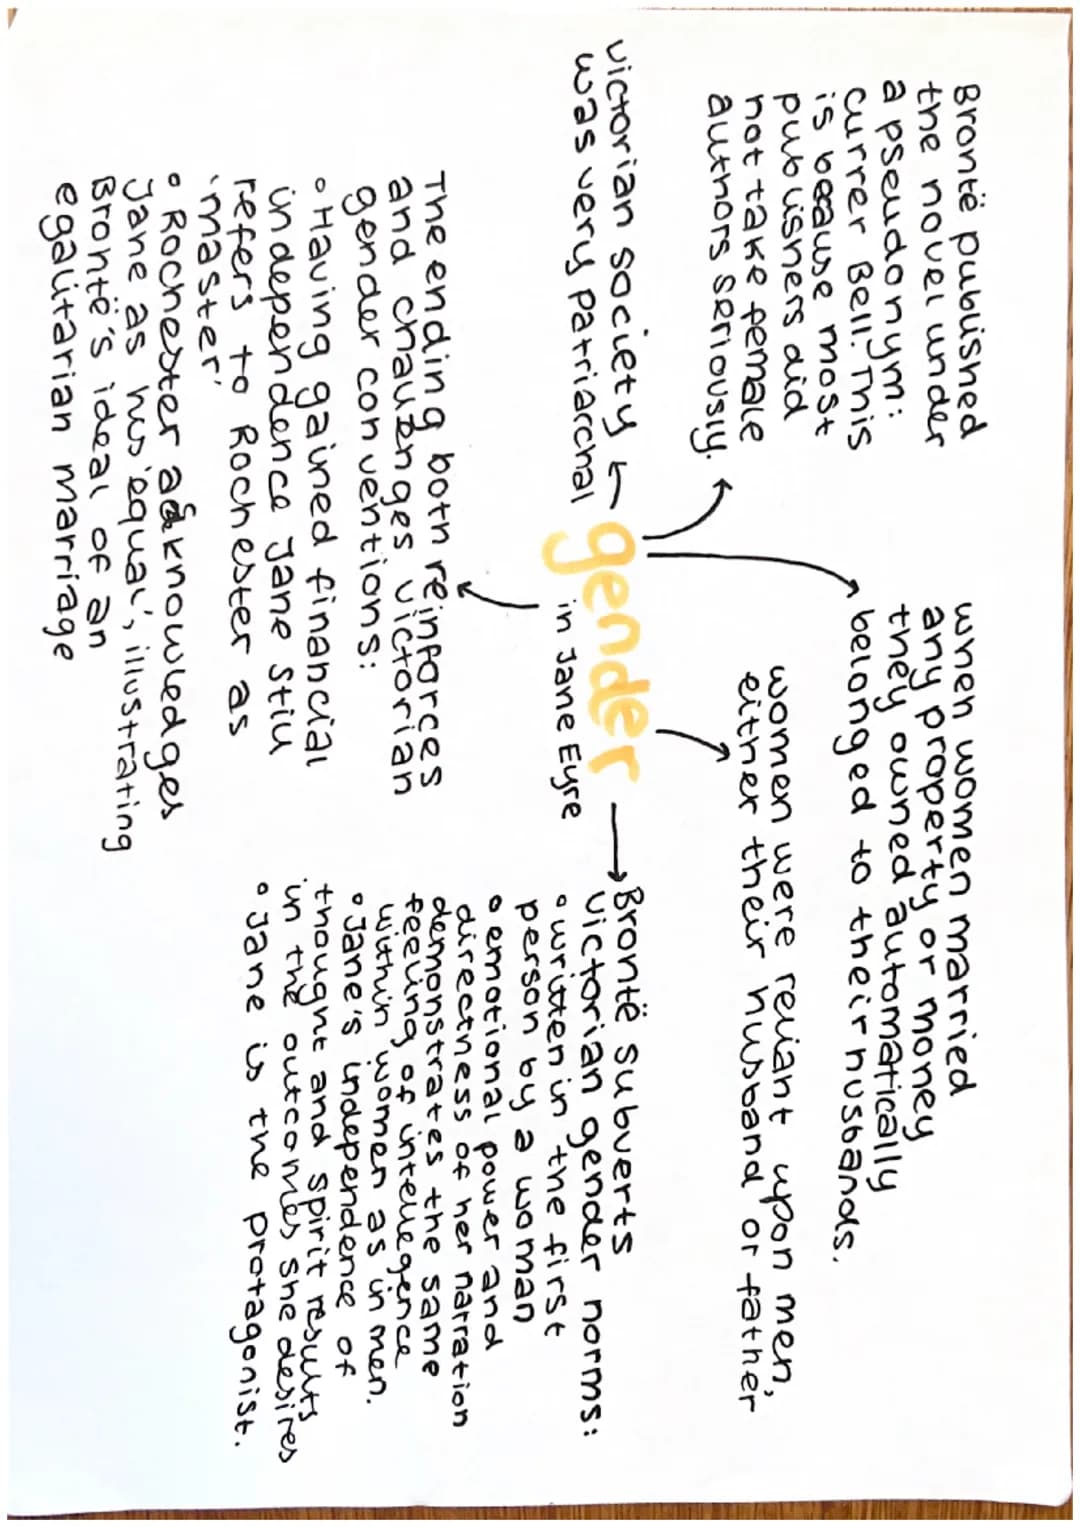 Brontë published
the novel under
a pseudonym:
Currer Bell. This
is because most
publishers did
not take female
authors seriously.
when women married
any property or money
they owned automatically
belonged to their husbands.
women were reliant upon men,
either their husband or father
victorian society
was very patriarchal
gender
in Jane Eyre
Brontë subverts
Victorian gender norms:
• written in the first
person by a woman
• emotional power and
directness of her narration
demonstrates the same
feeling of intellegence
within women as in men.
• Jane's independence of
thought and spirit results
in the outcomes she desires
• Jane is the protagonist.
The ending both reinforces
and challenges victorian
gender conventions:
• Having gained financial
independence Jane still
refers to Rochester as
'master'
• Rochester acknowledges
Jane as his 'equal', illustrating
Brontë's ideal of an
egalitarian marriage